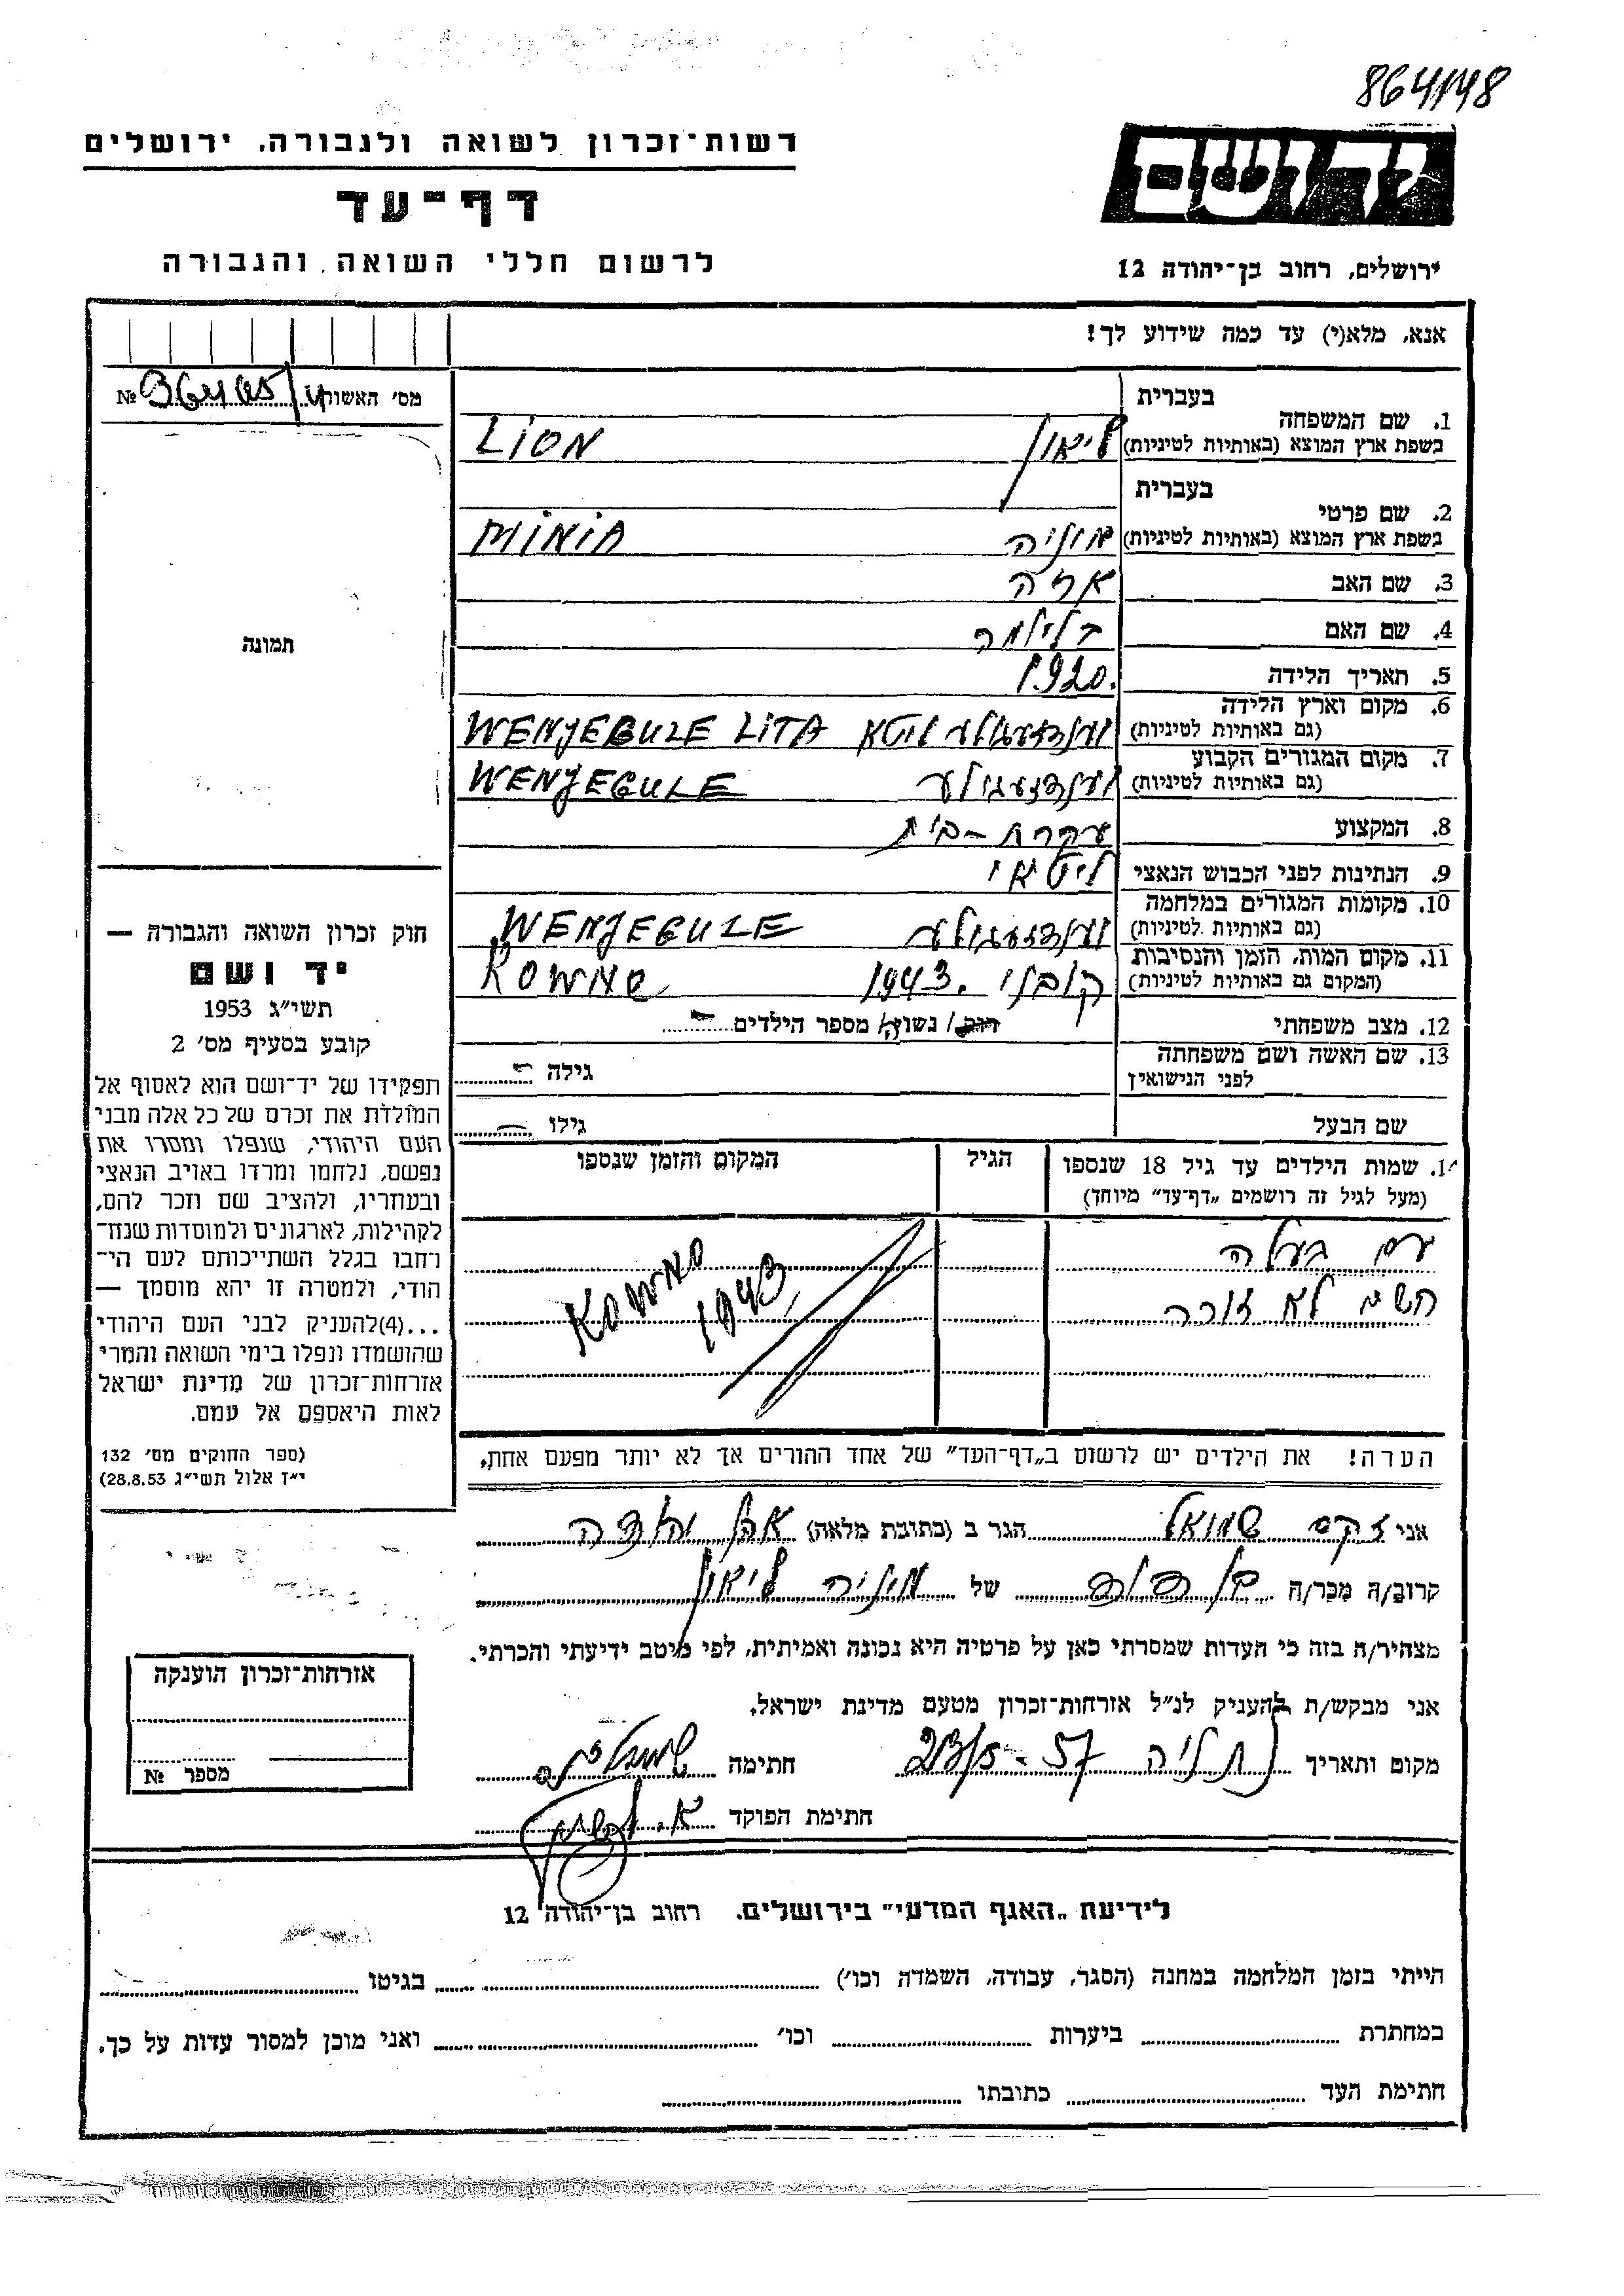 864/148
רשות־זכרון לשואה ולגבורה, ירושלים
דף־עד
לרשום חללי השואה והגבורה
יד ושם
ירושלים, רחוב בן־יהודה 12
אנא, מלא(י) עד כמה שידוע לך!
מס׳ האשור №
1. שם המשפחה
בעברית ליאון
בשפת ארץ המוצא (באותיות לטיניות) LION
2. שם פרטי
בעברית מיניה
בשפת ארץ המוצא (באותיות לטיניות) MINIA
3. שם האב אריה
4. שם האם
5. תאריך הלידה 1920.
6. מקום וארץ הלידה
(גם באותיות לטיניות) ליטא WENJEGULE LITA
7. מקום המגורים הקבוע
(גם באותיות לטיניות) WENJEGULE
8. המקצוע עקרת-בית
9. הנתינות לפני הכבוש הנאצי ליטאי
10. מקומות המגורים במלחמה
(גם באותיות לטיניות) WENJEGULE
11. מקום המות, הזמן והנסיבות
(המקום גם באותיות לטיניות) קובנו 1943. KOWNO
12. מצב משפחתי רווק/ נשוי/ה מספר הילדים
13. שם האשה ושם משפחתה
לפני הנישואין גילה
שם הבעל גילו
14. שמות הילדים עד גיל 18 שנספו
(מעל לגיל זה רושמים „דף־עד״ מיוחד)
הגיל
המקום והזמן שנספו
עם בעלה
השם לא זוכר
KOWNO
1943
הערה! את הילדים יש לרשום ב„דף־העד״ של אחד ההורים אך לא יותר מפעם אחת.
תמונה
חוק זכרון השואה והגבורה —
יד ושם
תשי״ג 1953
קובע בסעיף מס׳ 2
תפקידו של יד־ושם הוא לאסוף אל
המולדת את זכרם של כל אלה מבני
העם היהודי, שנפלו ומסרו את
נפשם, נלחמו ומרדו באויב הנאצי
ובעוזריו, ולהציב שם וזכר להם,
לקהילות, לארגונים ולמוסדות שנח־
רחבו בגלל השתייכותם לעם הי־
הודי, ולמטרה זו יהא מוסמך —
...(4)להעניק לבני העם היהודי
שהושמדו ונפלו בימי השואה והמרי
אזרחות־זכרון של מדינת ישראל
לאות היאספם אל עמם.
(ספר החוקים מס׳ 132
י״ז אלול תשי״ג 28.8.53)
אני זקס שמואל הגר ב (כתובת מלאה) אבן יהודה
קרוב/ה מכר/ה בן דוד של מיניה ליאון
מצהיר/ה בזה כי העדות שמסרתי כאן על פרטיה היא נכונה ואמיתית, לפי מיטב ידיעתי והכרתי.
אני מבקש/ת להעניק לנ״ל אזרחות־זכרון מטעם מדינת ישראל.
מקום ותאריך נתניה 23/5-57 חתימה
חתימת הפוקד
אזרחות־זכרון הוענקה
מספר №
לידיעת „האגף המדעי״ בירושלים. רחוב בן־יהודה 12
הייתי בזמן המלחמה במחנה (הסגר, עבודה, השמדה וכו׳) בגיטו
במחתרת ביערות וכו׳ ואני מוכן למסור עדות על כך.
חתימת העד כתובתו